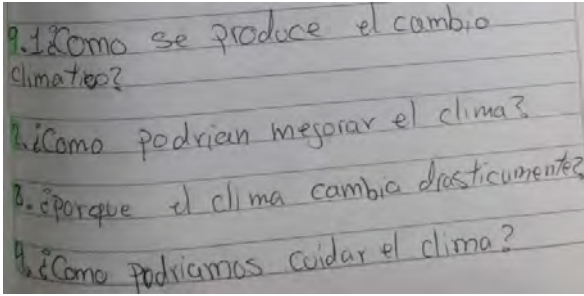 9.1¿Como se produce el cambio
climatico?
2.¿Como podrian mejorar el clima?
3.¿porque el clima cambia drasticamente?
4.¿Como podriamos cuidar el clima?